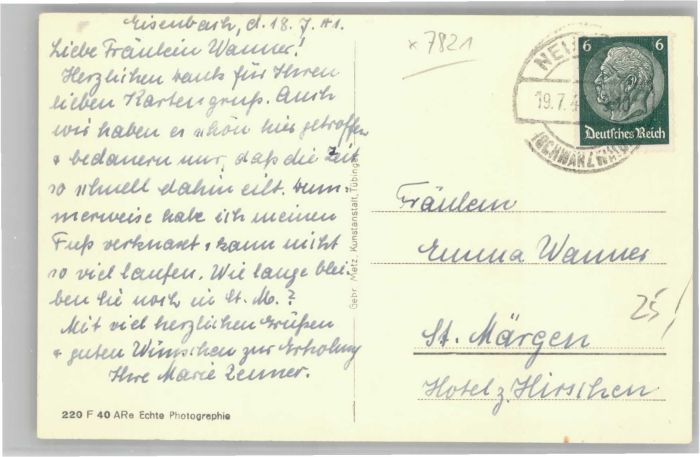 Eisenbach, d. 18.7.41.
Liebe Fräulein Wanner!
Herzlichen Dank für Ihren
lieben Kartengruß. Auch
wir haben es schön hier getroffen
+ bedauern nur, daß die Zeit
so schnell dahin eilt. Dum-
merweise habe ich meinen
Fuß verknaxt + kann nicht
so viel laufen. Wie lange blei-
ben Sie noch in St. M.?
Mit viel herzlichen Grüßen
+ guten Wünschen zur Erholung
Ihre Marie Zenner.
220 F 40 ARe Echte Photographie
Gebr. Metz, Kunstanstalt, Tübingen
x 7821
19.7.4
(SCHWARZWALD)
6 6
Deutsches Reich
Fräulein
Emma Wanner
St. Märgen
Hotel z. Hirschen
25,